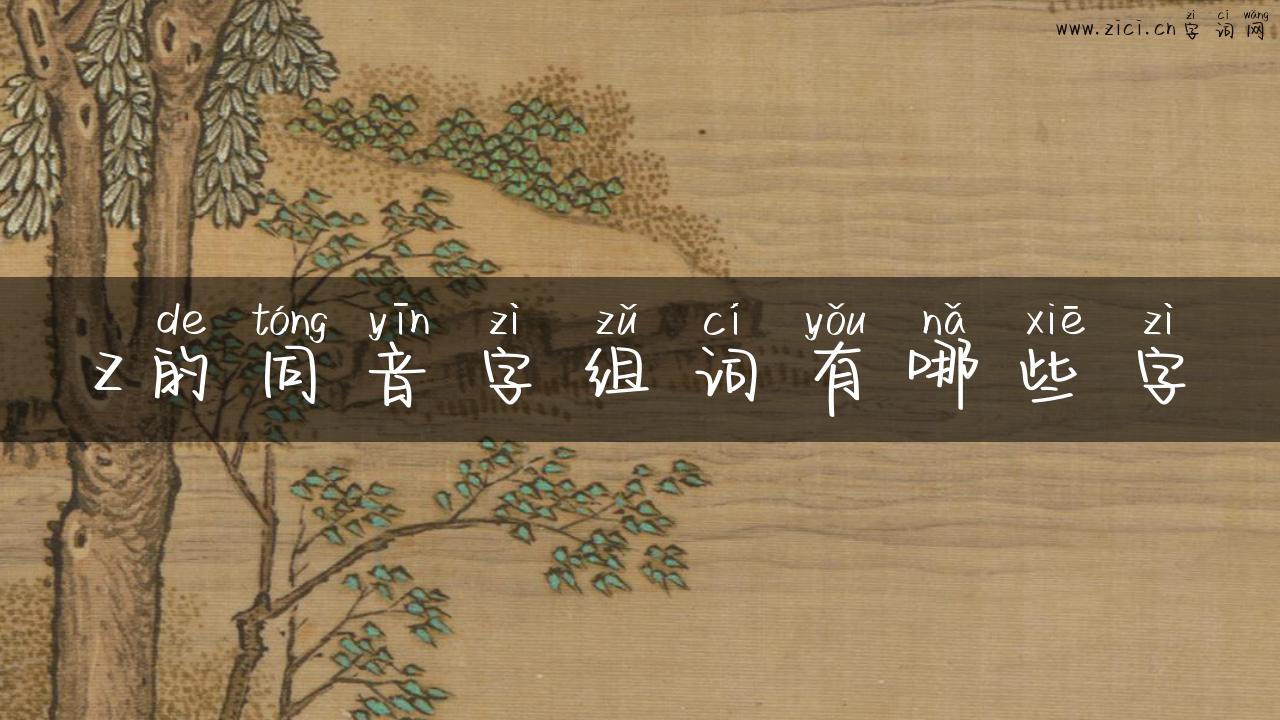 zì cí wǎng
www.zici.cn 字 词 网
de tóng yīn zì zǔ cí yǒu nǎ xiē zì
z 的 同 音 字 组 词 有 哪 些 字